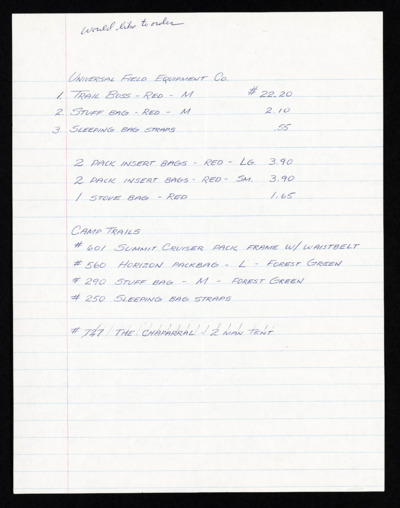 would like to order
UNIVERSAL FIELD EQUIPMENT CO.
1. TRAIL BOSS - RED - M $22.20
2 STUFF BAG - RED - M 2.10
3 SLEEPING BAG STRAPS .55
2 PACK INSERT BAGS - RED - LG. 3.90
2 PACK INSERT BAGS - RED - SM. 3.90
1 STOVE BAG - RED 1.65
CAMP TRAILS
# 601 SUMMIT CRUISER PACK FRAME W/ WAISTBELT
# 560 HORIZON PACKBAG - L - FOREST GREEN
# 290 STUFF BAG - M - FOREST GREEN
# 250 SLEEPING BAG STRAPS
# 747 THE CHAPARRAL 2 MAN TENT